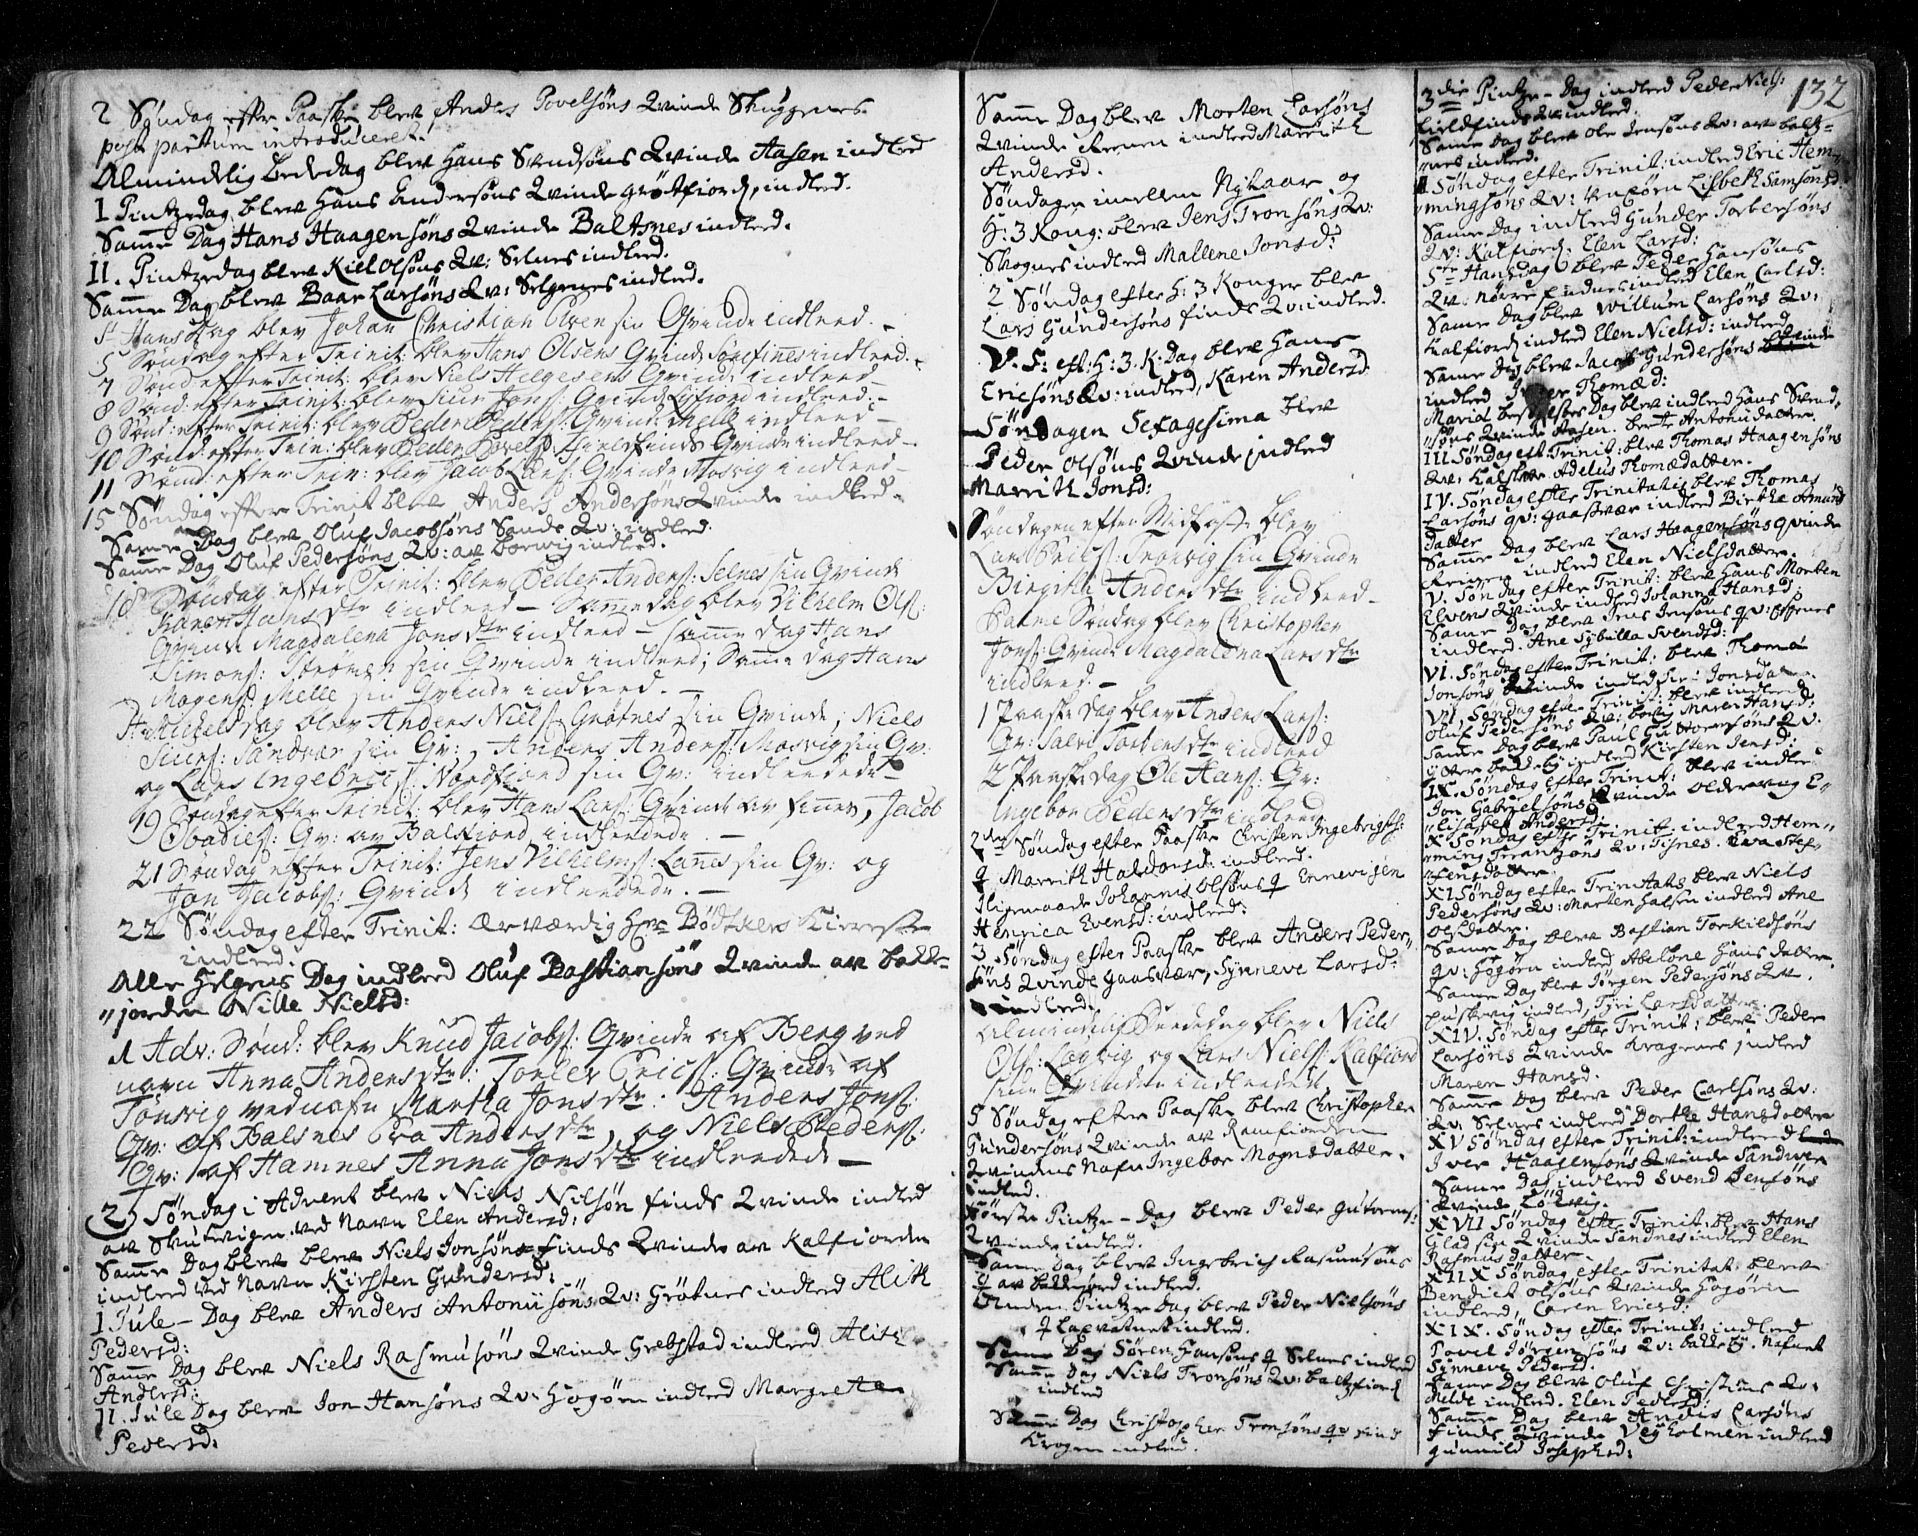 2 Søndag efter Paaske blev Anders Povelsöns Qvinde Skuggenes
post partum introduceret.
Almindelig bededag blev Hans Svendsöns Qvinde Aasen indled
I Pintzedag blev Hans Andersöns Qvinde Grøtfiord, indled.
Samme Dag Hans Haagensöns Qvinde Baltsnes indled.
II. Pintzedag blev Kiel Olsöns Qv: Selnes indled.
Samme Dag blev Baar Larsöns Qv: Selgenes indled.
St Hans Dag blev Johan Christian Even sin Qvinde indleed.
5 Søndag efter Trinit: blev Hans Olsens Qvinde indleed.
7 Sønd: efter Trinit: blev Niels Helgesens Qvinde indleed
8 Sønd: efter Trinit: blev Siur Jons: Qvinde Lyfiord indleed.
9 Sønd: efter Trinit: blev Peder Peders: Qvinde Melle indleed
10 Sønd: efter Trin: blev Peder Povels: Qvinde indleed
11 Sønd: efter Trin: blev Jacob Lars: Qvinde Mosvig indleed
15 Søndag efter Trinit blev Anders Andersöns Qvinde indleed.
Samme Dag blev Oluf Jacobsöns Sands Qv: indled.
Samme Dag Oluf Pedersöns Qv: av indled.
18 Søndag efter Trinit: blev Peder Anders: Selnes sin Qvinde
Karen Hans dtr indleed – Samme dag blev Vilhelm Ols:
Qvinde Magdalena Jons dtr indleed – samme dag Hans
Simons: sin Qvinde indleed; Samme dag Hans
Mogens: Melle sin Qvinde indleed. –
St Michels dag blev Anders Niels: Grøtnes sin Qvinde; Niels
Siurs: Sandvær sin Qv:, Anders Anders: Mosvig sin Qv:
og Lars Ingebricts: Nordfiord sin Qv: indleedede
19 Søndag efter Trinit: blev Hans Lars: Qvinde av Finnes, Jacob
Obadies: Qv: av Balsfiord indleedede. –
21 Søndag efter Trinit: Jens Vilhelms: Lanes sin Qv: og
Jon Jacobs: Qvinde indleedede. –
22 Søndag efter Trinit: Ærværdig Hr Bödtkers Kiereste
indleed.
Alle Helgens Dag indleed Oluf Bastiansöns Qvinde av bakke-
"jorden Nille Nielsd:
1 Adv: Sønd: blev Knud Jacobs: Qvinde af Berg ved
navn Anna Anders dtr: Torler Erics: Qvinde af
Tönsvig ved nafn Martha Jons dtr: Anders Jons:
Qv: af Balsnes Eva Anders dtr, og Niels Peders:
Qv: af Hamnes Anna Jons dtr indleedede –
2) Søndag i Advent blev Niels Nilsön Finds Qvinde indled
av Skulsvigen ved Navn Elen Andersd:
Samme Dag blev blev Niels Jonsöns Finds Qvinde av Kalfiorden
indled ved Navn Kirsten Gundersd:
I Jule-Dag blev Anders Antoniisöns Qv: Grötnes indled Alith
Pedersd:
Samme Dag blev Niels Rasmusöns Qvinde Grebstad indleed Alith
Andersd:
II. Jule Dag blev Jon Hansöns Qv: Hogörn indled Margrete
Pedersd:
Samme Dag blev Morten Larsöns
Qvinde Renen indled Marrith
Andersd.
Søndagen imellem Nytaar og
H: 3 Kong: blev Jens Tronsöns Qv:
Skognes indled Mallene Jonsd:
2 Søndag efter H: 3 Konger blev
Lars Gundersöns Finds Qv: indled.
V. S: eft: H: 3. K. Dag blev Hans
Ericsöns Qv: indled, Karen Andersd
Søndagen Sexagesima blev
Peder Olsöns Qvinde indled
Marrith Jonsd:
Søndagen efter Midfaste blev
Lars Erics: sin Qvinde
Birgitha Anders dtr indleed –
Samme Søndag blev Christopher
Jons: Qvinde Magdalena Lars dtr
indleed. –
1 Paaske dag blev Anders Lars:
Qv: Salvi Torbers dtr indleed
2 Paaske dag Ole Hans: Qv:
Ingebor Peders dtr indleed
2den Søndag efter Paaske Christen Ingebrigts:
Q Marrith Haldorsd. indled.
Iligemaade Johannis Olsöns Q Ennevigen
Henrica Evensd: indled:
3. Søndag efter Paaske blev Anders Peder-
söns Qvinde Gaasvær, Synneve Larsd:
indled.
Almindelig Beededag blev Niels
Ols: Løgvig og Lars Niels: Kalfiord
sine Qvinder indleedede
5 Søndag efter Paaske blev Christopher
Gundersöns Qvinde av Ramfiorden
Qvindens Nafn Ingebor Mognsdatter.
indled.
Første Pintze-Dag blev Peder Gutorms:
Qvinde indled.
Samme Dag blev Ingebrich Rasmusöns
Q av bakkejord indled.
Anden Pintze Dag blev Peder Nielsöns
Q Laxvatnet indled.
Samme Dag Søren Hansöns Q Selnes indled
Samme Dag Niels Tronsöns Qv: balsfiord
indled
Samme Dag Christopher Tronsöns Qv Find
Kragen indled.
132
3die Pintze-Dag indled Peder Niels:
Qv: indled.
Samme Dag blev Ole Jensöns Qv: av balts-
nes indled.
Søndag efter Trinit: indled Eric Hem-
mingsöns Qv: Lisbeth Samsonsd
Samme Dag indled Gunder Torbersöns
Qv: Kalfiord. Elen Larsd:
St Hansdag blev Peder Hansöns
Qv: Nörre indled Elen Carlsd:
Samme Dag blev Willum Larsöns Qv:
Kalfiord indled Elen Nielsd: indled
Samme Dag blev Jacob Gundersöns
indled Thomæd:
Mariæ besøgelses Dag blev indled Hans Svend-
söns Qvinde Aasen. berte Antonidatter.
III Søndag eft: Trinit: blev Thomas Haagensöns
Qv: Adelus Thomædatter.
IV. Søndag efter Trinitatis blev Thomas
Larsöns qv: Gaasvær indled Birthe Amund
datter
Samme Dag blev Lars Haagensöns qvinde
indled Elen Nielsdatter.
V. Søndag efter Trinit: blev Hans Morten
Elvens Qvinde indled Johanna Hansd:
Samme Dag blev Jens Jensöns qv:
indled. Ane Sybilla Svendsd:
VI. Søndag efter Trinit: blev Thomæ
Jonsöns Qvinde indled Jonsda
VII. Søndag efter Trinit: blev indled
Oluf Pedersöns Qv: Maren Hansd:
Samme Dag blev Paul Guttormsöns Qv:
bakkeby indled Kirsten Jensd.
IX. Søndag efter Trinit: blev indled
Jon Gabrielsöns Qvinde Oldervaag E-
lisabet Andersd:
X Søndag efter Trinit indled Hem-
ming Qv: Tisnes. Eva Stef-
fensdatter.
XI Søndag efter Trinitatis blev Niels
Pedersöns Qv: Mortenhalsen indled Ane
Olsdatter.
Samme Dag blev Bastian Torkildsöns
qv: Hogörn indled Abelone Hans datter.
Samme Dag blev Jörgen Pedersöns Qv.
indled, Siri Larsdatter.
XIV. Søndag efter Trinit: blev Peder
Larsöns Qvinde Kragenes indled
Maren Hansd.
Samme Dag blev Peder Carlsöns Qv:
Selnes indled Dorthe Hansdatter
XV Søndag efter Trinit: indleed
Iver Haagensöns Qvinde Sandvær
Samme Dag indled Svend Bensöns
Qvinde
XVII Søndag efter Trinit: blev Hans
Glad sin Qvinde Sandnes indled Elen
Rasmus datter
XIIX Søndag efter Trinitat: blev
Bendict Olsöns Qvinde Hogörn
indled, Caren Ericsd:
XIX. Søndag efter Trinit: indled
Povel Jörgensöns Qv: bakkeby. Nafnet
Synneve Pedersd.
Samme Dag blev Oluf Christens Qv:
Melde indled. Elen Pedersd:
Samme Dag blev Anders Larsöns
Finds Qvinde Vegholmen indled
Gunnild Josephsd: